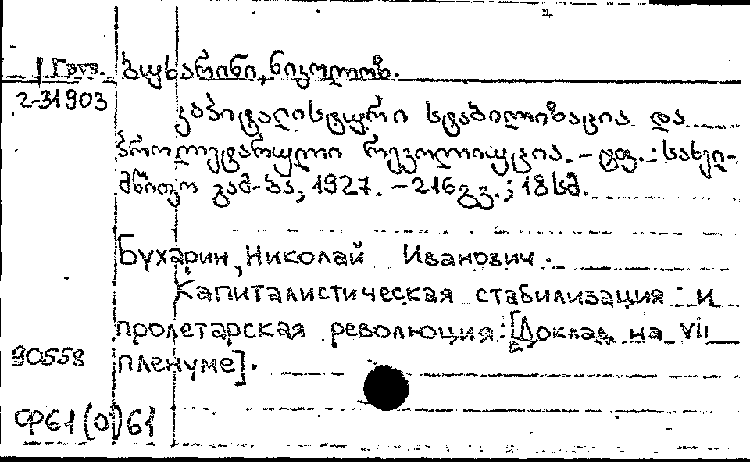 Груз. ბუხარინი, ნიკოლოზ.
2-31903
კაპიტალისტური სტაბილიზაცია და
პროლეტარული რევოლიუცია. – ტფ. : სახელ-
მწიფო გამ-ბა, 1927. – 216 გვ. ; 18 სმ.
Бухарин, Николай Иванович.
Капиталистическая стабилизация и
пролетарская революция: [Доклад на VII
90558 пленуме].
ФР61(0)61